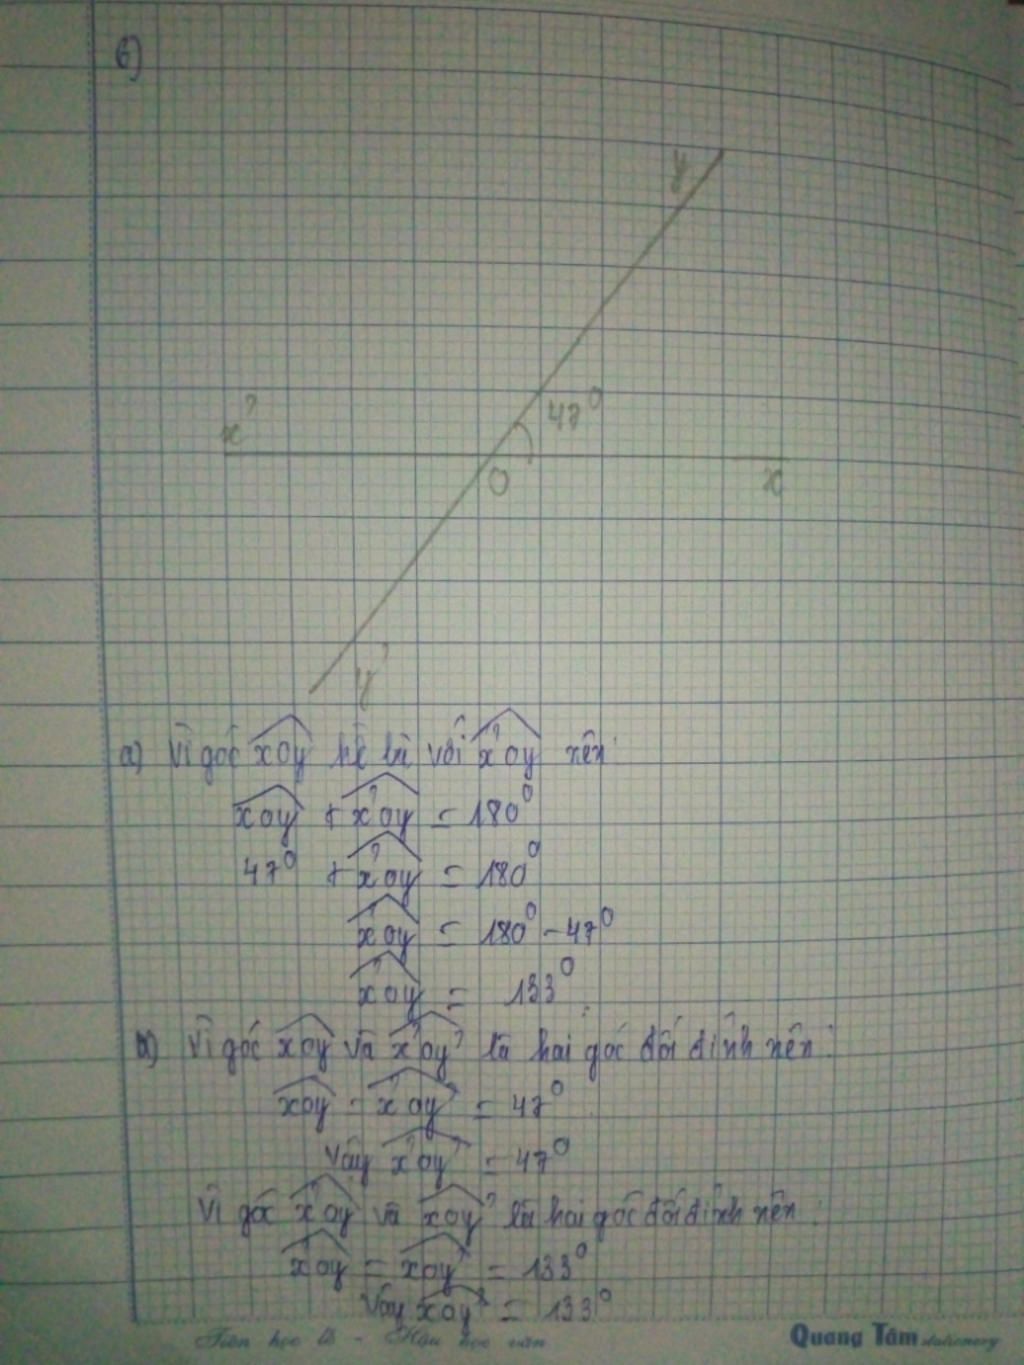 6)
y
47⁰
x'
O
x
y'
a) Vì góc xOy kề bù với x'Oy nên:
xOy + x'Oy = 180⁰
47⁰ + x'Oy = 180⁰
x'Oy = 180⁰ - 47⁰
x'Oy = 133⁰
b) Vì góc xOy và x'Oy' là hai góc đối đỉnh nên:
xOy = x'Oy' = 47⁰
Vậy x'Oy' = 47⁰
Vì góc x'Oy và xOy' là hai góc đối đỉnh nên:
x'Oy = xOy' = 133⁰
Vậy xOy' = 133⁰
Tiên học lễ - Hậu học văn
Quang Tâm stationery